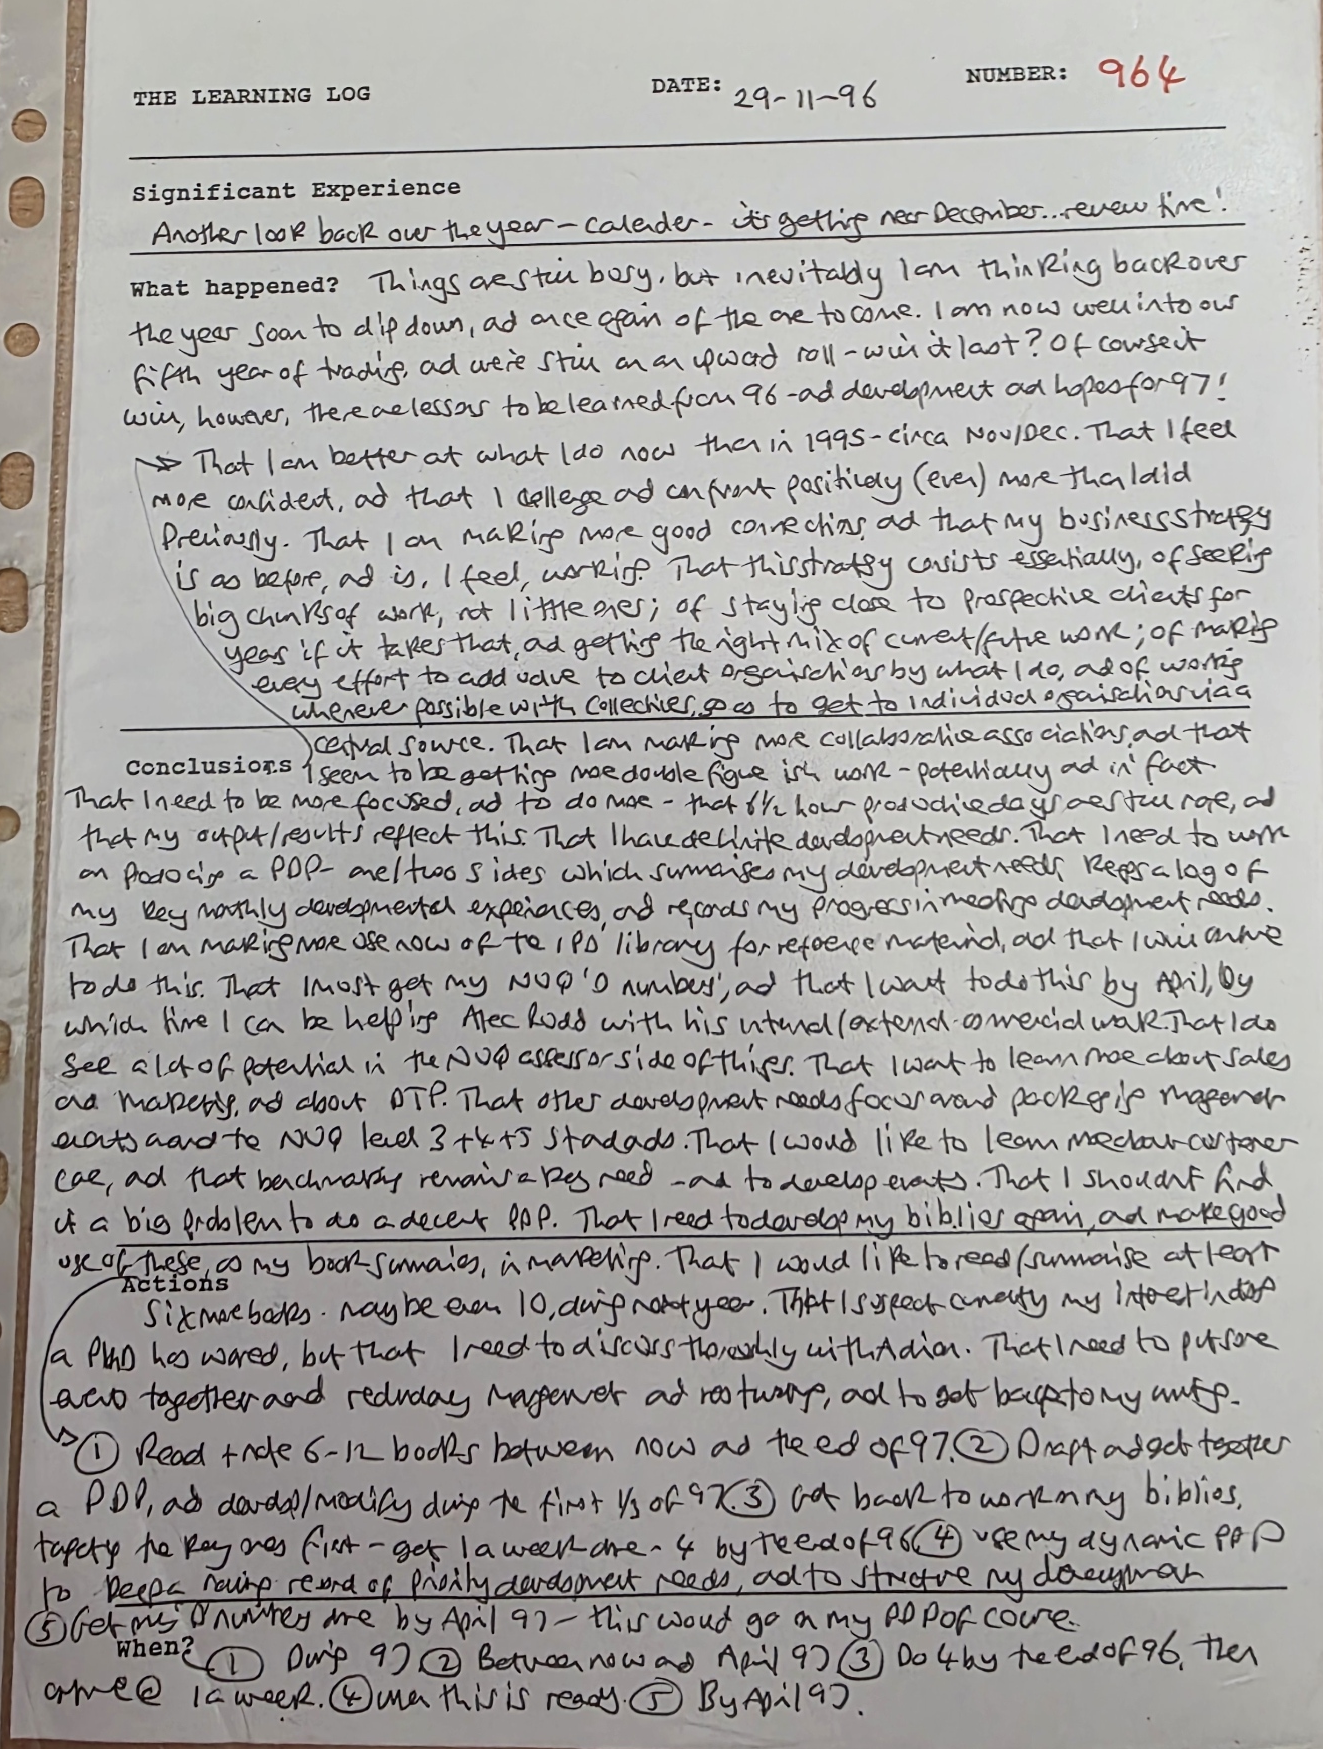 THE LEARNING LOG DATE: 29-11-96 NUMBER: 964
Significant Experience
Another look back over the year - calender - it's getting near December... review time!
What happened? Things are still busy, but inevitably I am thinking back over
the year soon to dip down, and once again of the one to come. I am now well into our
fifth year of trading, and we're still on an upward roll - will it last? Of course it
will, however, there are lessons to be learned from 96 - and development and hopes for 97!
→ That I am better at what I do now than in 1995 - circa Nov/Dec. That I feel
more confident, and that I challenge and confront positively (even) more than I did
previously. That I am making more good connections, and that my business strategy
is as before, and is, I feel, working. That this strategy consists essentially, of seeking
big chunks of work, not little ones; of staying close to prospective clients for
years if it takes that, and getting the right mix of current/future work; of making
every effort to add value to client organisations by what I do, and of working
whenever possible with collectives, so as to get to individual organisations via a
central source. That I am making more collaborative associations, and that
Conclusions I seem to be getting more double figure ish work - potentially and in fact
That I need to be more focused, and to do more - that 6½ hour productive days are still rare, and
that my output/results reflect this. That I have definite development needs. That I need to work
on producing a PDP - one/two sides which summarises my development needs, keeps a log of
my key monthly developmental experiences, and records my progress in meeting development needs.
That I am making more use now of the IPD library for reference material, and that I will continue
to do this. That I must get my NVQ 'D numbers', and that I want to do this by April, by
which time I can be helping Alec Rudd with his internal/external commercial work. That I do
see a lot of potential in the NVQ assessor side of things. That I want to learn more about sales
and marketing, and about DTP. That other development needs focus around packaging management
events around the NVQ level 3+4+5 standards. That I would like to learn more about customer
care, and that benchmarking remains a key need - and to develop events. That I shouldn't find
it a big problem to do a decent PDP. That I need to develop my biblios again, and make good
use of these, as my book summaries, in marketing. That I would like to read/summarise at least
Actions
six more books. maybe even 10, during next year. That I suspect currently my interest in doing
a PhD has waned, but that I need to discuss thoroughly with Adrian. That I need to put some
together around redundancy management and restructuring, and to get back to my writing.
① Read + note 6-12 books between now and the end of 97. ② Draft and get together
a PDP, and develop/modify during the first 1/3 of 97. ③ Get back to work on my biblios,
targeting the key ones first - get 1 a week done - 4 by the end of 96 ④ use my dynamic PDP
to keep a running record of priority development needs, and to structure my development
⑤ Get my 'D' numbers done by April 97 - this would go on my PDP of course.
When? ① During 97 ② Between now and April 97 ③ Do 4 by the end of 96, then
continue @ 1 a week. ④ when this is ready. ⑤ By April 97.